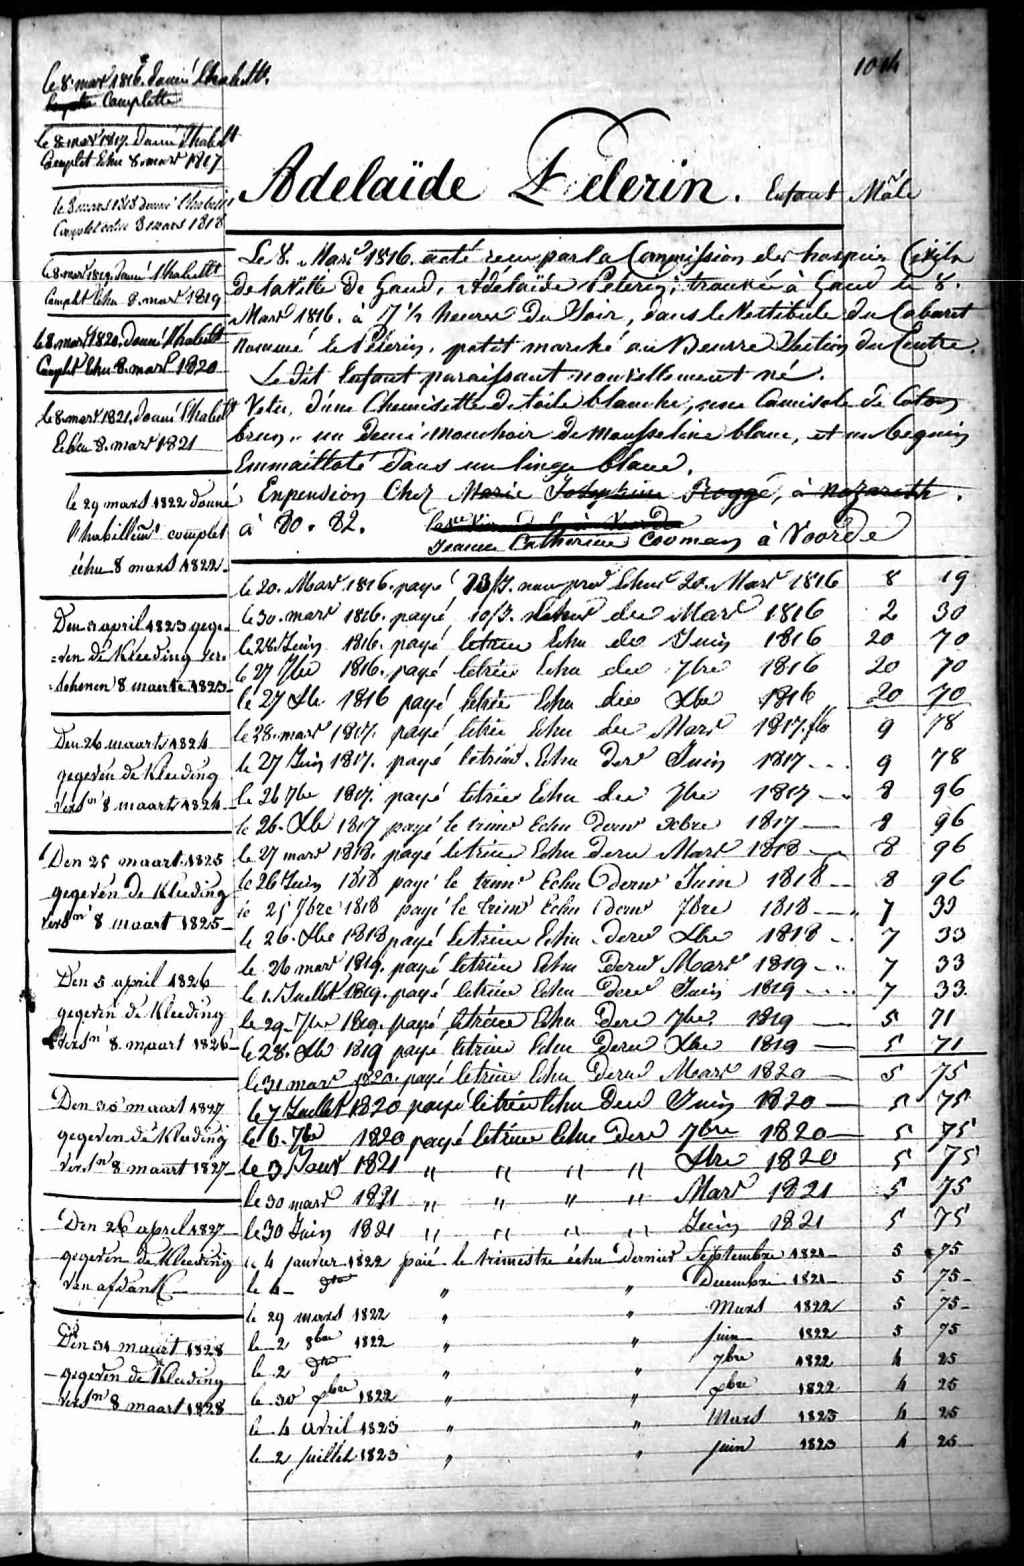 104
le 8. mars 1816. donné l'habillt.
Complette
le 8 mars 1817. donné l'habillt
Complet Echu 8. mars 1817
le 8 mars 1818 donné l'habillt
Complet echu 8 mars 1818
le 8 mars 1819. donné l'habillt
Complet Echu 8. mars 1819
le 8. mars 1820. donné l'habillt
Complet Echu 8. mars 1820
le 8 mars 1821. donné l'habillt
Echu 8. mars 1821
le 29 mars 1822 donné
l'habillemt complet
échu 8 mars 1822.
Den 3 april 1823 gege=
=ven de Kleeding vers
=schenen 8 maerte 1823
Den 26 maart 1824
gegeven de Kleeding
versn 8 maart 1824
Den 25 maart 1825
gegeven de Kleeding
versn 8 maart 1825
Den 5 april 1826
gegeven de Kleeding
versn 8 maart 1826
Den 30 maart 1827
gegeven de Kleeding
versn 8 maart 1827
Den 26 april 1827
gegeven de Kleeding
van afdank
Den 31 maart 1828
gegeven de Kleeding
versn 8 maart 1828
Adelaïde Pelerin. Enfant Mâle
Le 8. Mars 1816. a été reçu par la Commission des hospices Civils
de la Ville de Gand, Adélaïde Pelerin, trouvée à Gand le 8.
Mars 1816. à 7 1/2 heures Du Soir, dans le Vestibule du Cabaret
nommé le Pélérin, petit marché au Beurre Section du Centre.
Le dit Enfant paraissant nouvellement né.
Vetu, d'une Chemisette de toile blanche, une Camisole de Coton
brun, un Demi mouchoir de mousseline blanc, et un beguin
Emmaillotté dans un linge blanc.
En pension Chez Marie Josephine Roggé, à Nazareth.
à 80. 82.
Jeanne Catherine Cooman à Voorde
le 20. Mars 1816. payé, 23/. Echu 20. Mars 1816 8 19
le 30. mars 1816. payé, 10/. Echu du Mars 1816 2 30
le 28. Juin 1816. payé letrim Echu de Juin 1816 20 70
le 27 7bre 1816. payé letrim Echu de 7bre 1816 20 70
le 27 Xbr 1816 payé letrim Echu de Xbre 1816 20 70
le 28. mars 1817. payé letrim Echu de Mars 1817. 9 78
le 27 Juin 1817. payé letrim. Echu Derr Juin 1817 9 78
le 26 7br 1817. payé letrim Echu de 7bre 1817 8 96
le 26. Xbr 1817 payé le trimr Echu dernr Xbre 1817 8 96
le 27 mars 1818. payé letrim Echu dern Mars 1818 8 96
le 26 Juin 1818 payé le trimr Echu dernr Juin 1818 8 96
le 25 7bre 1818 payé le trimr Echu dernr 7bre 1818 7 33
le 26. Xbre 1818 payé letrim Echu dern Xbre 1818 7 33
le 26 mars 1819. payé letrim Echu dern Mars 1819 7 33
le 1. Juillet 1819. payé letrim Echu dern Juin 1819 7 33.
le 29. 7br 1819. payé letrim Echu dern 7bre. 1819 5 71
le 28. Xbr 1819 payé letrim Echu dern Xbre 1819 5 71
le 31 mars 1820. payé letrim Echu dern Mars 1820 5 75
le 7 Juillet 1820 payé letrim Echu dern Juin 1820 5 75
le 6. 7br 1820 payé letrim Echu dern 7bre 1820 5 75
le 3 Janv 1821 " " " " Xbre 1820 5 75
le 30 mars 1821 " " " " Mars 1821 5 75
le 30 Juin 1821 " " " " Juin 1821 5 75
le 4 janvier 1822 paié le trimestre échu Dernier Septembre 1821 5 75
le 4 dto " " Decembre 1821 5 75
le 29 mars 1822 " " Mars 1822 5 75
le 2 8bre 1822 " " juin 1822 5 75
le 2 dto " " 7bre 1822 4 25
le 30 xbre 1822 " " xbre 1822 4 25
le 4 avril 1823 " " Mars 1823 4 25
le 2 juillet 1823 " " juin 1823 4 25